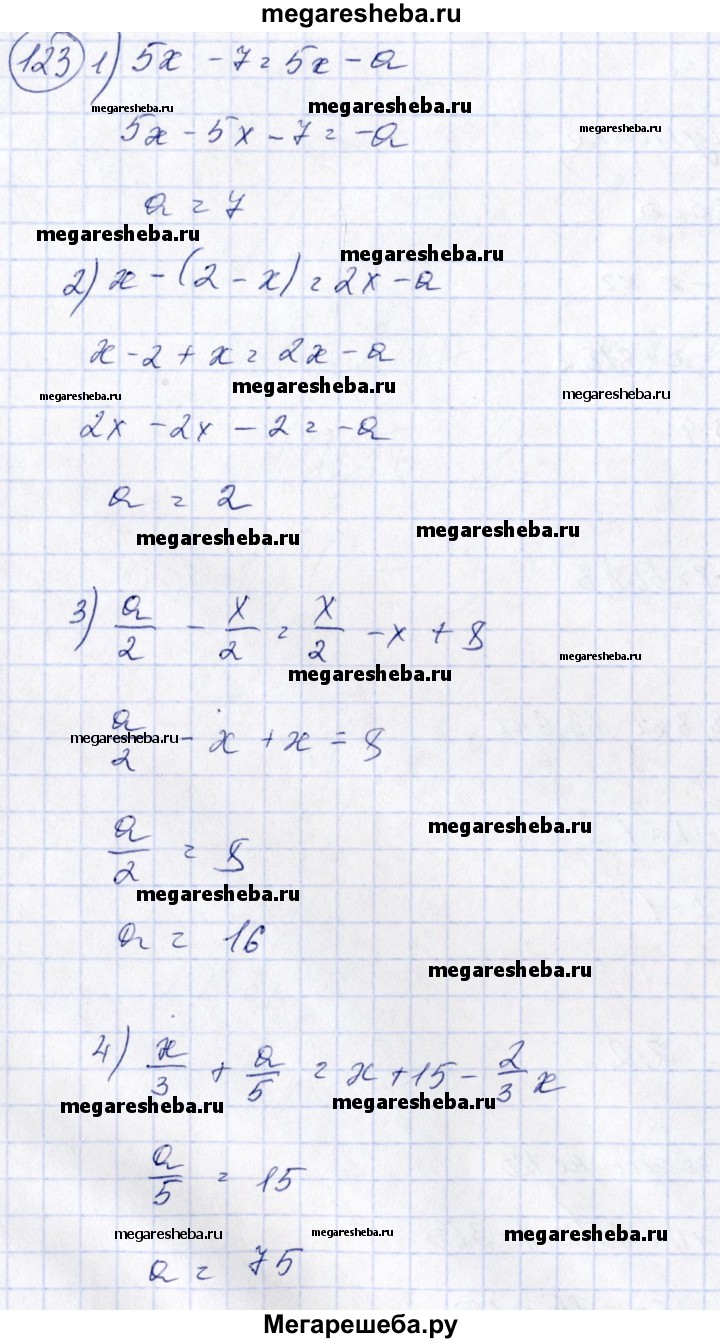 megaresheba.ru
123 1) 5x - 7 = 5x - a
megaresheba.ru megaresheba.ru
megaresheba.ru
5x - 5x - 7 = -a
a = 7
megaresheba.ru
megaresheba.ru
2) x - (2 - x) = 2x - a
x - 2 + x = 2x - a
megaresheba.ru megaresheba.ru megaresheba.ru
2x - 2x - 2 = -a
a = 2
megaresheba.ru megaresheba.ru
3) a/2 - x/2 = x/2 - x + 8
megaresheba.ru megaresheba.ru
a/2 - x + x = 8
megaresheba.ru
megaresheba.ru
a/2 = 8
megaresheba.ru
a = 16
megaresheba.ru
4) x/3 + a/5 = x + 15 - 2/3 x
megaresheba.ru megaresheba.ru
a/5 = 15
megaresheba.ru megaresheba.ru megaresheba.ru
a = 75
Мегарешеба.ру